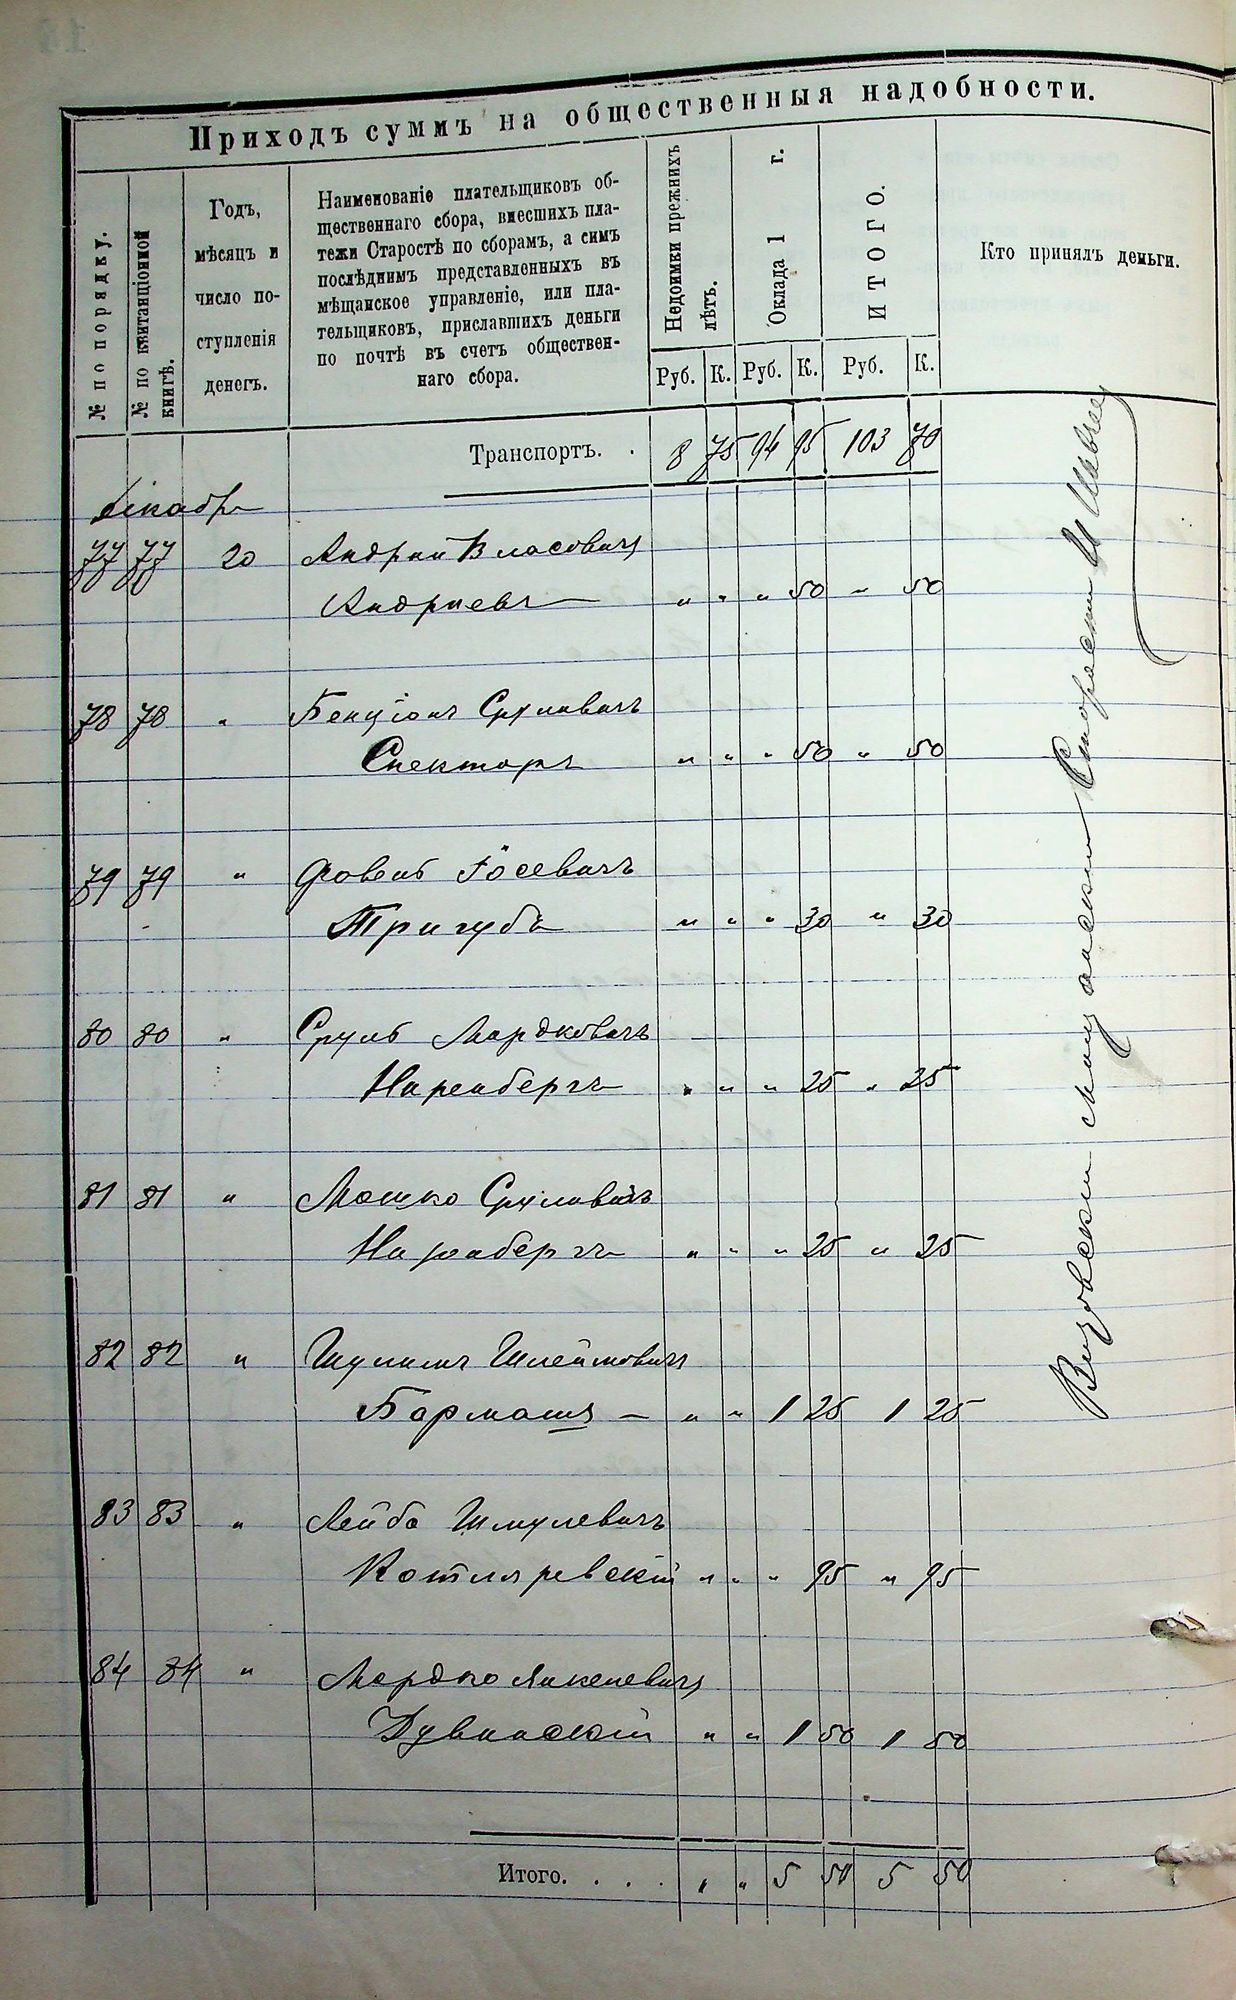 Приходъ суммъ на общественныя надобности.
№ по порядку.
№ по квитанціонной книгѣ.
Годъ,
мѣсяцъ и
число по-
ступленія
денегъ.
Наименованіе плательщиковъ об-
щественнаго сбора, внесшихъ пла-
тежи Старостѣ по сборамъ, а симъ
послѣднимъ представленныхъ въ
мѣщанское управленіе, или пла-
тельщиковъ, приславшихъ деньги
по почтѣ въ счетъ обществен-
наго сбора.
Недоимки прежнихъ
лѣтъ.
Оклада 1 г.
ИТОГО.
Кто принялъ деньги.
Руб. К. Руб. К. Руб. К.
Транспортъ. . 8 75 94 95 103 70
Декабрь
77 77 20 Андрей Власовичъ
Андриевъ — „ „ „ 50 „ 50
78 78 „ Бенціонъ Сруливичъ
Спекторъ „ „ „ 50 „ 50
79 79 „ Іосевичъ
Тригубъ „ „ „ 30 „ 30
80 80 „ Сруль Мордковичъ
Наренбергъ „ „ „ 25 „ 25
81 81 „ Мошко Сруливичъ
Наренбергъ „ „ „ 25 „ 25
82 82 „ Шулимъ Шлеймовичъ
Бармашъ — „ „ 1 25 1 25
83 83 „ Лейба Шмулевичъ
Котляревскій „ „ „ 95 „ 95
84 84 „ Мордко Янкелевичъ
Дувинскій „ „ 1 50 1 50
Итого. . . . „ „ 5 50 5 50